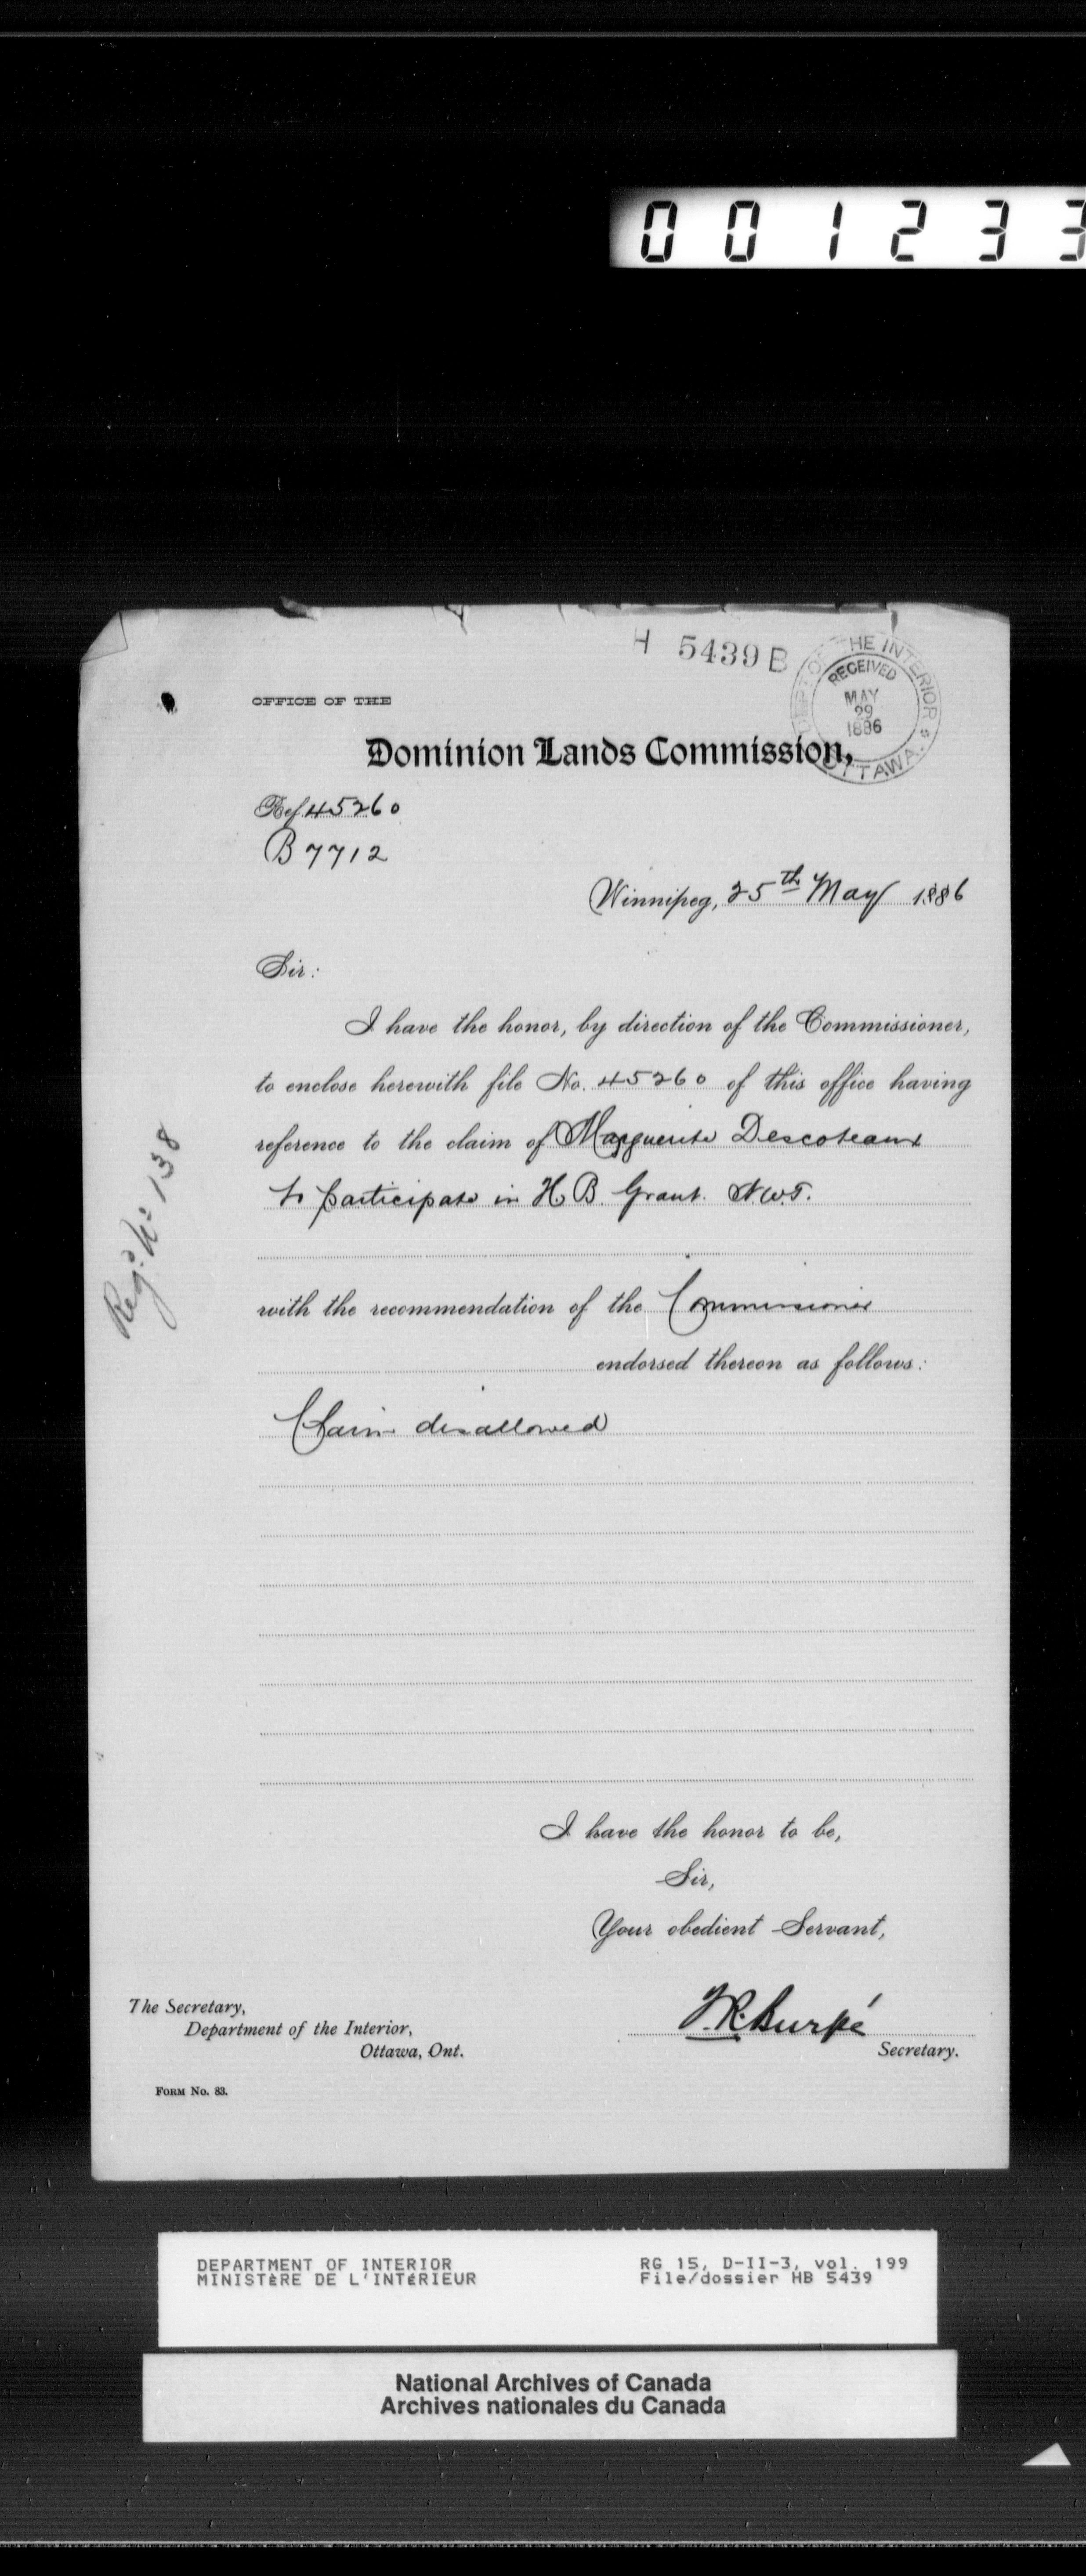 0 0 1 2 3 3
H 5439 B
DEPT OF THE INTERIOR * OTTAWA.
RECEIVED
MAY
29
1886
OFFICE OF THE
Dominion Lands Commission,
Ref 45260
B 7712
Winnipeg, 25th May 1886
Sir:
I have the honor, by direction of the Commissioner,
to enclose herewith file No. 45260 of this office having
reference to the claim of Marguerite Descoteaux
to participate in H B. Grant. N.W.T.
with the recommendation of the Commissioner
endorsed thereon as follows:
Claim disallowed
Reg. No 138
I have the honor to be,
Sir,
Your obedient Servant,
The Secretary,
Department of the Interior,
Ottawa, Ont.
J.R. Burpé
Secretary.
FORM No. 83.
DEPARTMENT OF INTERIOR
MINISTÈRE DE L'INTÉRIEUR
RG 15, D-II-3, vol. 199
File/dossier HB 5439
National Archives of Canada
Archives nationales du Canada